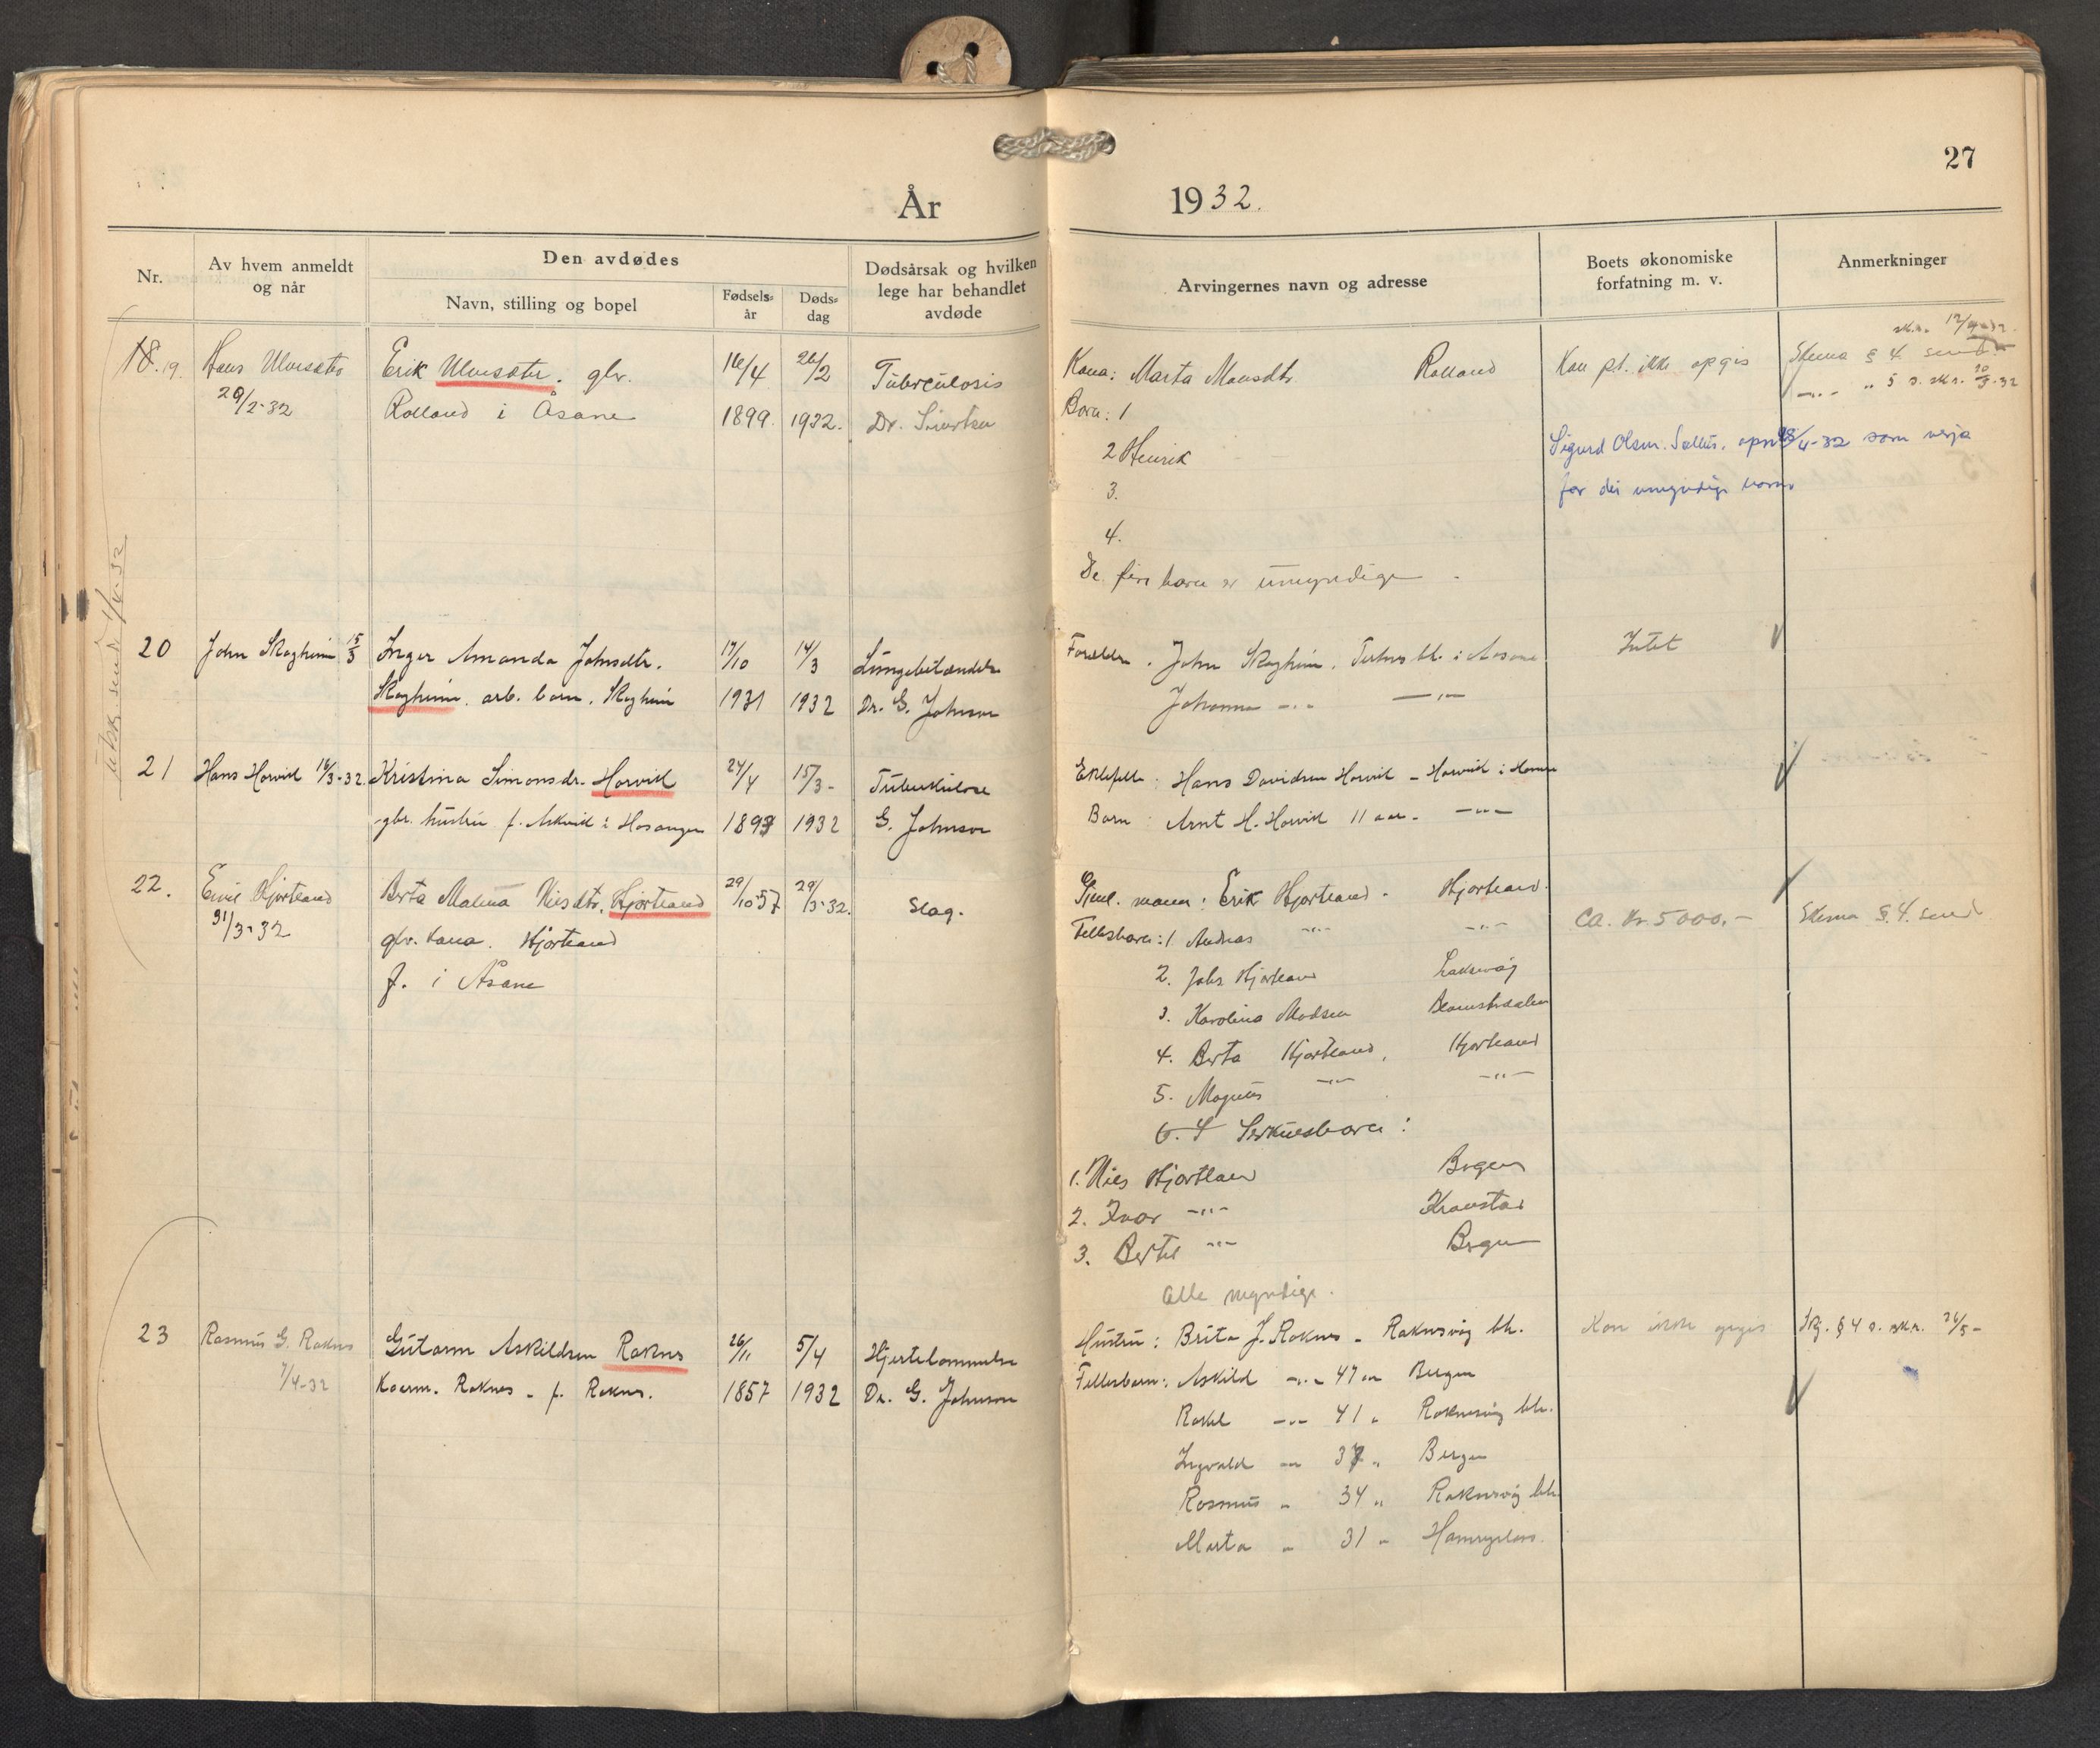 27
År 1932.
Nr.
Av hvem anmeldt og når
Den avdødes
Navn, stilling og bopel
Fødsels-år
Døds-dag
Dødsårsak og hvilken lege har behandlet avdøde
Arvingernes navn og adresse
Boets økonomiske forfatning m. v.
Anmerkninger
18. 19.
Hans Ulvesæter
29/2-32
Erik Ulvesæter. gbr.
Rolland i Åsane
16/4
1899.
26/2
1932.
Tuberculosis
Dr. Sivertsen
Kona: Marta Monsdtr. Rolland
Born: 1
2 Henrik
3.
4.
De fire born er umyndige.
Kan pt. ikke opgis
Skema § 4 send.
Sigurd Olsen 4-32 som verja
for dei umyndige born
20
John Skogheim 15/3
Inger Amanda Johnsdtr.
Skogheim. arb. barn. Skogheim
17/10
1931
14/3
1932
Lungebetændelse
Dr. G. Johnson
Foreldre. John Skogheim.
Johanna -"- -"-
Intet
21
Hans Horvik 16/3-32
Kristina Simonsdr. Horvik
gbr. hustru f. Askvik i Hosanger
24/4
1893
15/3-
1932
Tuberkulose
G. Johnson
Ektefelle: Hans Davidsen Horvik - Horvik i Hamre
Barn: Arnt H. Horvik 11 aar. -"-
22.
Emil Hjortland
31/3-32
Berta Malena Nilsdtr. Hjortland
gbr. kona. Hjortland
f. i Åsane
29/10-57
29/3-32.
Slag.
Gjenl. mann: Erik Hjortland. Hjortland.
Fellesborn: 1 Andreas -"- -"-
2. Johs Hjortland Laksevåg
3. Karolina Madsen
4. Berta Hjortland, Hjortland
5. Magnus -"- -"-
Særkulsborn:
1. Nils Hjortland Bergen
2. Ivar -"- Kronstad
3. Bertel -"- Bergen
Alle myndige.
Ca. Kr. 5000,-
Skema § 4. send
23
Rasmus G. Raknes
7/4-32
Gutorm Askildsen Raknes
Kaarm. Raknes - f. Raknes.
26/11
1857
5/4
1932
Hjertelammelse
Dr. G. Johnson
Hustru: Brita J. Raknes - Raknesvåg hh.
Fellesbarn: Askild -"- 47 aar Bergen
Rakel -"- 41 " Raknesvåg hh.
Ingvald -"- 37 " Bergen
Rasmus " 34 " Raknesvåg hh.
Marta " 31 "
Kan ikke opgis
Skj. § 4 s. skr. 26/5-